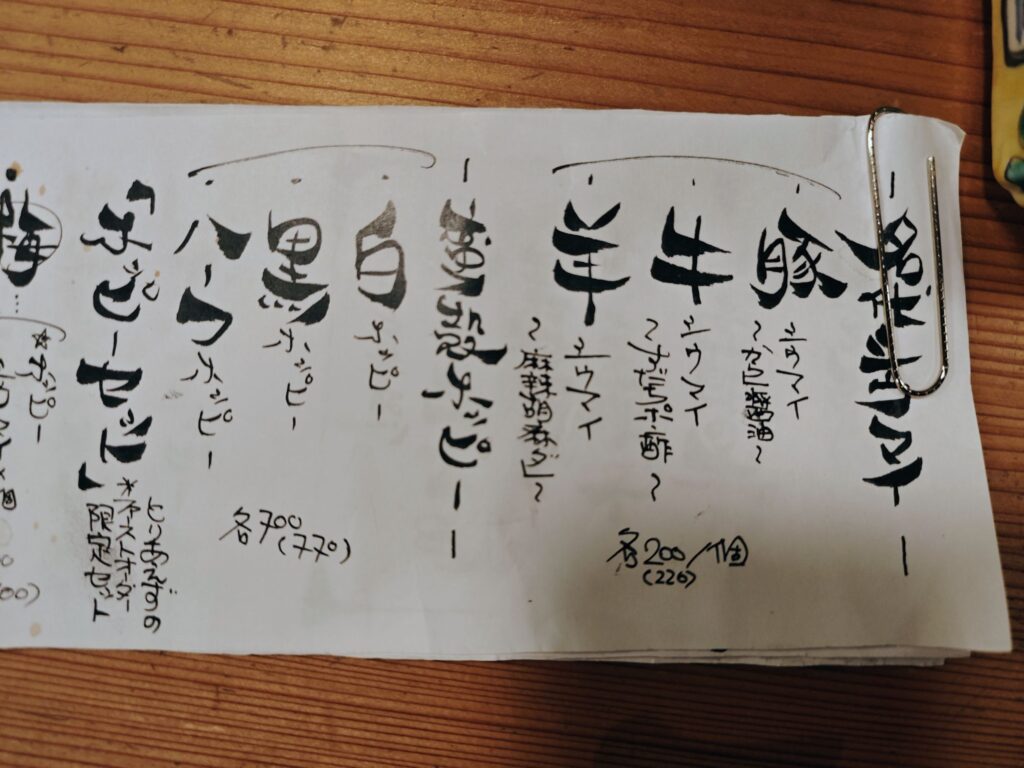 - 名代シウマイ -
・豚シウマイ
〜醤油〜
・牛シウマイ
〜すだちポン酢〜
・羊シウマイ
〜麻辣胡麻ダレ〜
各200/個
(220)
ホッピー -
・白ホッピー
・黒ホッピー
・ハーフホッピー
各700
(770)
「ホッピーセット」
とりあえずの
*ファーストオーダー
限定セット
・梅…
*ホッピー